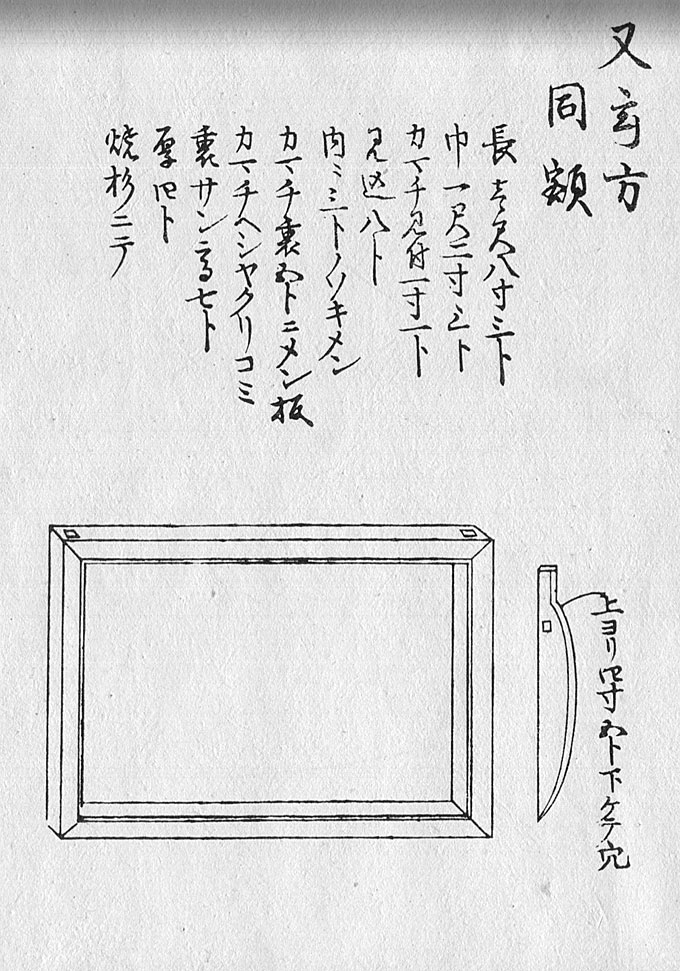 又玄方
同額
長壱尺八寸三卜
巾一尺二寸三卜
カマチ見付一寸一卜
見込八卜
内ミ三卜ノソキメン
カマチ裏五卜ニメン板
カマチヘシヤクリコミ
裏サン高七卜
厚四卜
焼杉ニテ
上ヨリ四寸五卜下ケテ穴